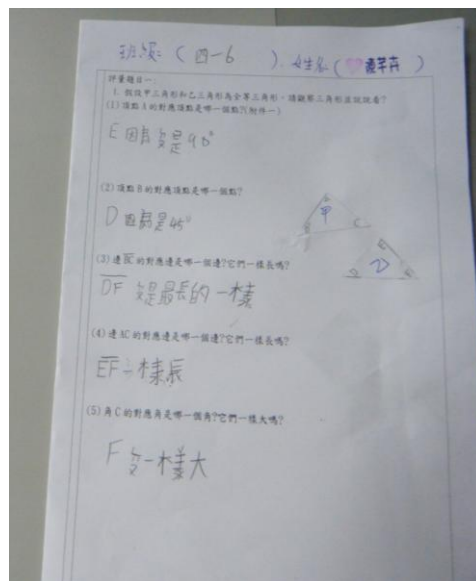 班級:(四-6 ),姓名(♥ )
評量題目一:
1. 假設甲三角形和乙三角形為全等三角形,請觀察三角形並說說看?
(1)頂點A的對應頂點是哪一個點?(附件一)
E 因為 是90°
(2)頂點B的對應頂點是哪一個點?
D 因為是45°
甲
C
D
乙
(3)邊BC的對應邊是哪一個邊?它們一樣長嗎?
DF 是最長的 一樣
(4)邊AC的對應邊是哪一個邊?它們一樣長嗎?
EF 一樣長
(5)角C的對應角是哪一個角?它們一樣大嗎?
F 一樣大